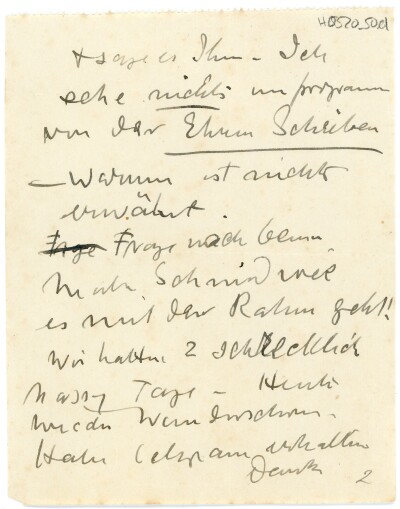 H0520_50d
+ sage es Ihm – Ich
sehe nichts im program
von der Ehren Scheiben
– Warum ist nichts
erwähnt.
Frage Frage nach beim
Mark Schmid wie
es mit der Rahm geht!
Wir hatten 2 schrecklich
nasse Tage – Heute
wieder Wunderschön.
Habe Telegram erhalten
Danke 2